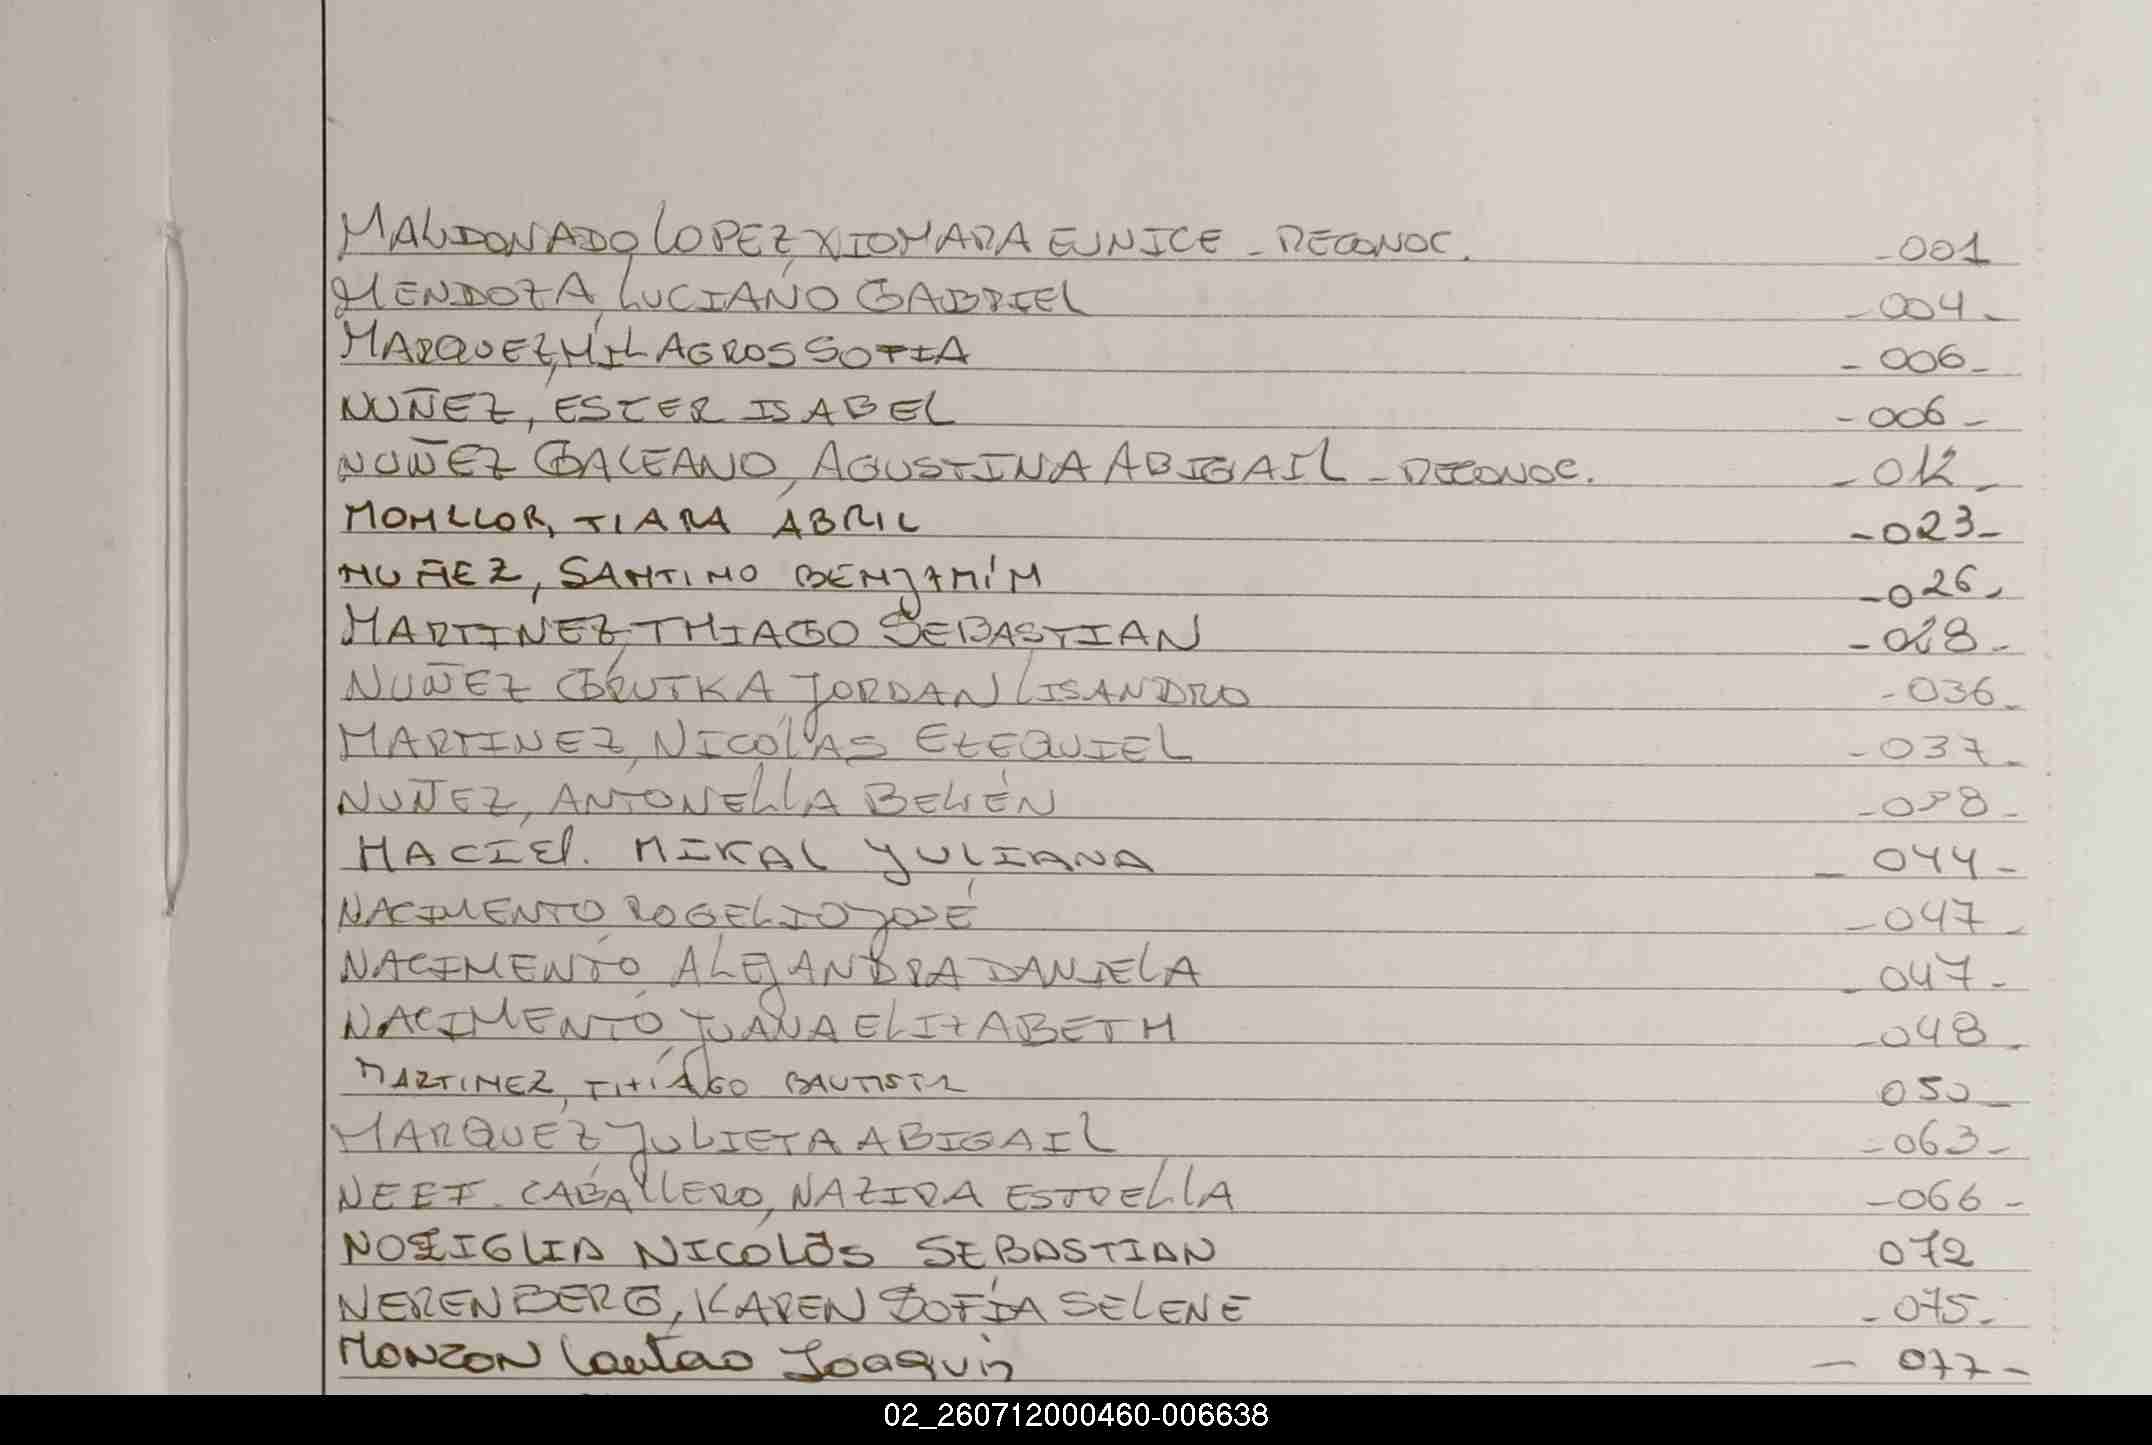 MALDONADO LOPEZ, XIOMARA EUNICE - RECONOC. - 001
MENDOZA, LUCIANO GABRIEL - 004 -
MARQUEZ, MILAGROS SOFIA - 006 -
NUÑEZ, ESTER ISABEL - 006 -
NUÑEZ GALEANO, AGUSTINA ABIGAIL - RECONOC. - 012 -
MOHLLOR, TIARA ABRIL - 023 -
NUÑEZ, SANTINO BENJAMÍN - 026 -
MARTINEZ, THIAGO SEBASTIAN - 028 -
NUÑEZ GRUTKA JORDAN LISANDRO - 036 -
MARTINEZ, NICOLAS EZEQUIEL - 037 -
NUÑEZ, ANTONELLA BELÉN - 038 -
MACIEL. MIKAL YULIANA - 044 -
NACIMENTO ROGELIO JOSÉ - 047 -
NACIMENTO, ALEJANDRA DANIELA - 047 -
NACIMENTO, JUANA ELIZABETH - 048 -
MARTINEZ, THIAGO BAUTISTA 050 -
MARQUEZ JULIETA ABIGAIL - 063 -
NEEF - CABALLERO, NAZIRA ESTRELLA - 066 -
NOZIGLIA NICOLÁS SEBASTIAN 072
NERENBERG, KAREN SOFÍA SELENE - 075 -
MONZON Lautaro Joaquin - 077 -
02_260712000460-006638